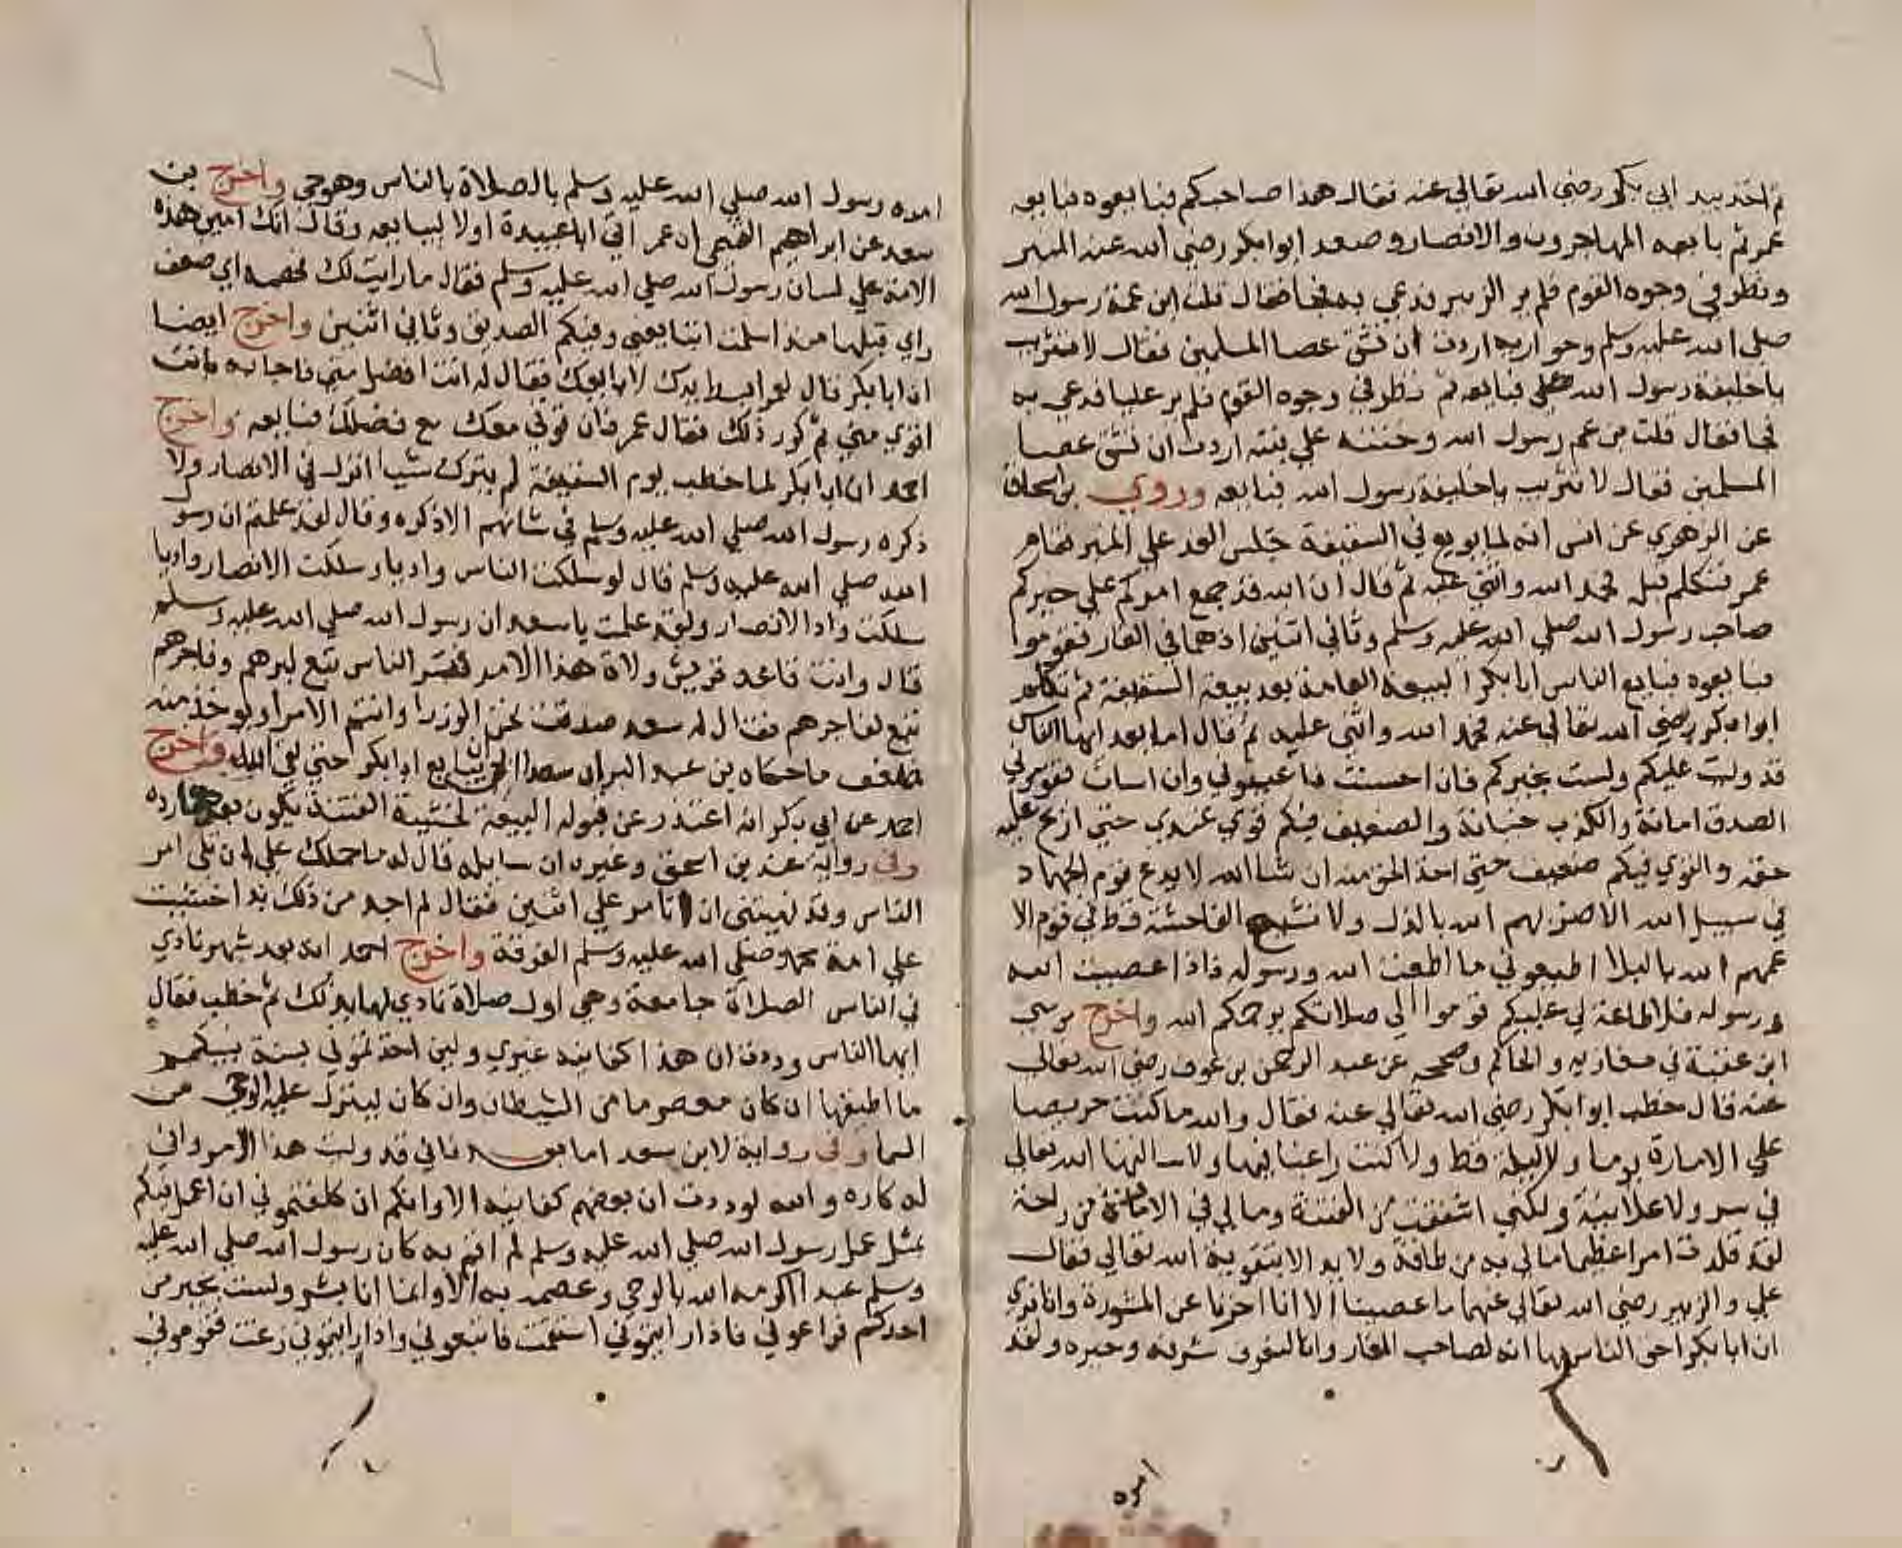 ثم اخذ بيد ابي بكر رضي الله تعالي عنه فقال هذا صاحبكم فبايعوه فبايعه
عمر ثم بايعه المهاجرون والانصار وصعد ابو بكر رضي الله عنه المنبر
ونظر في وجوه القوم فلم ير الزبير فدعي به فجا فقال قلت ابن عمة رسول الله
صلي الله عليه وسلم وحواريه اردت ان تشق عصا المسلمين فقال لا تثريب
يا خليفة رسول الله فبايعه ثم نظر في وجوه القوم فلم ير عليا فدعي به
فجا فقال قلت بن عم رسول الله وختنه علي بنته اردت ان تشق عصا
المسلمين فقال لا تثريب يا خليفة رسول الله فبايعه وروي بن اسحاق
عن الزهري عن انس انه لما بويع في السقيفة جلس الغد علي المنبر فقام
عمر فتكلم قبله فحمد الله واثني عليه ثم قال ان الله قد جمع امركم علي خيركم
صاحب رسول الله صلي الله عليه وسلم وثاني اثنين اذ هما في الغار فقوموا
فبايعوه فبايع الناس ابا بكر البيعة العامة بعد بيعة السقيفة ثم تكلم
ابو بكر رضي الله تعالي عنه فحمد الله واثني عليه ثم قال اما بعد ايها الناس
قد وليت عليكم ولست بخيركم فان احسنت فاعينوني وان اسات فقوموني
الصدق امانة والكذب خيانة والضعيف فيكم قوي عندي حتي ازيح عليه
حقه والقوي فيكم ضعيف حتي اخذ الحق منه ان شا الله لا يدع قوم الجهاد
في سبيل الله الا ضربهم الله بالذل ولا تشيع الفاحشة قط في قوم الا
عمهم الله بالبلا اطيعوني ما اطعت الله ورسوله فاذا عصيت الله
ورسوله فلا طاعة لي عليكم قوموا الي صلاتكم يرحمكم الله واخرج موسي
ابن عقبة في مغازيه والحاكم وصححه عن عبد الرحمن بن عوف رضي الله تعالي
عنه قال خطب ابو بكر رضي الله تعالي عنه فقال والله ما كنت حريصا
علي الامارة يوما ولا ليلة قط ولا كنت راغبا فيها ولا سالتها الله تعالي
في سر ولا علانية ولكني اشفقت من الفتنة وما لي في الامارة من راحة
لقد قلدت امرا عظيما ما لي به من طاقة ولا يد الا بتقوية الله تعالي فقال
علي والزبير رضي الله تعالي عنهما ما عصبنا الا انا اخرنا عن المشورة وانا نري
ان ابا بكر احق الناس بها انه لصاحب الغار وانا لنعرف شرفه وخيره ولقد
امره
امره رسول الله صلي الله عليه وسلم بالصلاة بالناس وهو حي واخرج بن
سعد عن ابراهيم التيمي ان عمر اتي ابا عبيدة اولا ليبايعه وقال انك امين هذه
الامة علي لسان رسول الله صلي الله عليه وسلم فقال ما رايت لك فهمة اي ضعف
راي قبلها منذ اسلمت اتبايعني وفيكم الصديق وثاني اثنين واخرج ايضا
ان ابا بكر قال لعمر ابسط يدك لابايعك فقال له انت افضل مني فاجابه بانت
اقوي مني ثم كرر ذلك فقال عمر فان قوتي معك مع فضلك فبايعه واخرج
احمد ان ابا بكر لما خطب يوم السقيفة لم يترك شيا انزل في الانصار ولا
ذكره رسول الله صلي الله عليه وسلم في شانهم الا ذكره وقال لقد علمتم ان رسول
الله صلي الله عليه وسلم قال لو سلكت الناس واديا وسلكت الانصار واديا
سلكت واد الانصار ولقد علمت يا سعد ان رسول الله صلي الله عليه وسلم
قال وانت قاعد قريش ولاة هذا الامر فبر الناس تبع لبرهم وفاجرهم
تبع لفاجرهم فقال له سعد صدقت نحن الوزرا وانتم الامرا ويوخذ منه
ضعف ما حكاه بن عبد البر ان سعدا لم يبايع ابا بكر حتي لقي الله واخرج
احمد عن ابي بكر انه اعتذر عن قبوله البيعة لخشية الفتنة يكون بعدها رده
وفي رواية عند بن اسحق وغيره ان سايله قال له ما حملك علي ان تلي امر
الناس وقد نهيتني ان اتامر علي اثنين فقال لم اجد من ذلك بدا خشيت
علي امة محمد صلي الله عليه وسلم الفرقة واخرج احمد انه بعد شهر نادي
في الناس الصلاة جامعة وهي اول صلاة نادي لها بذلك ثم خطب فقال
ايها الناس وددت ان هذا كفانيه غيري ولين اخذتموني بسنة نبيكم
ما اطيقها ان كان معصوما من الشيطان وان كان لينزل عليه الوحي من
السما وفي رواية لابن سعد اما بعد فاني قد وليت هذا الامر واني
له كاره والله لوددت ان بعضكم كفانيه الا وانكم ان كلفتموني ان اعمل فيكم
بمثل عمل رسول الله صلي الله عليه وسلم لم اقم به كان رسول الله صلي الله عليه
وسلم عبدا اكرمه الله بالوحي وعصمه به الا وانما انا بشر ولست بخير من
احدكم فراعوني فاذا رايتموني استقمت فاتبعوني واذا رايتموني زغت فقوموني